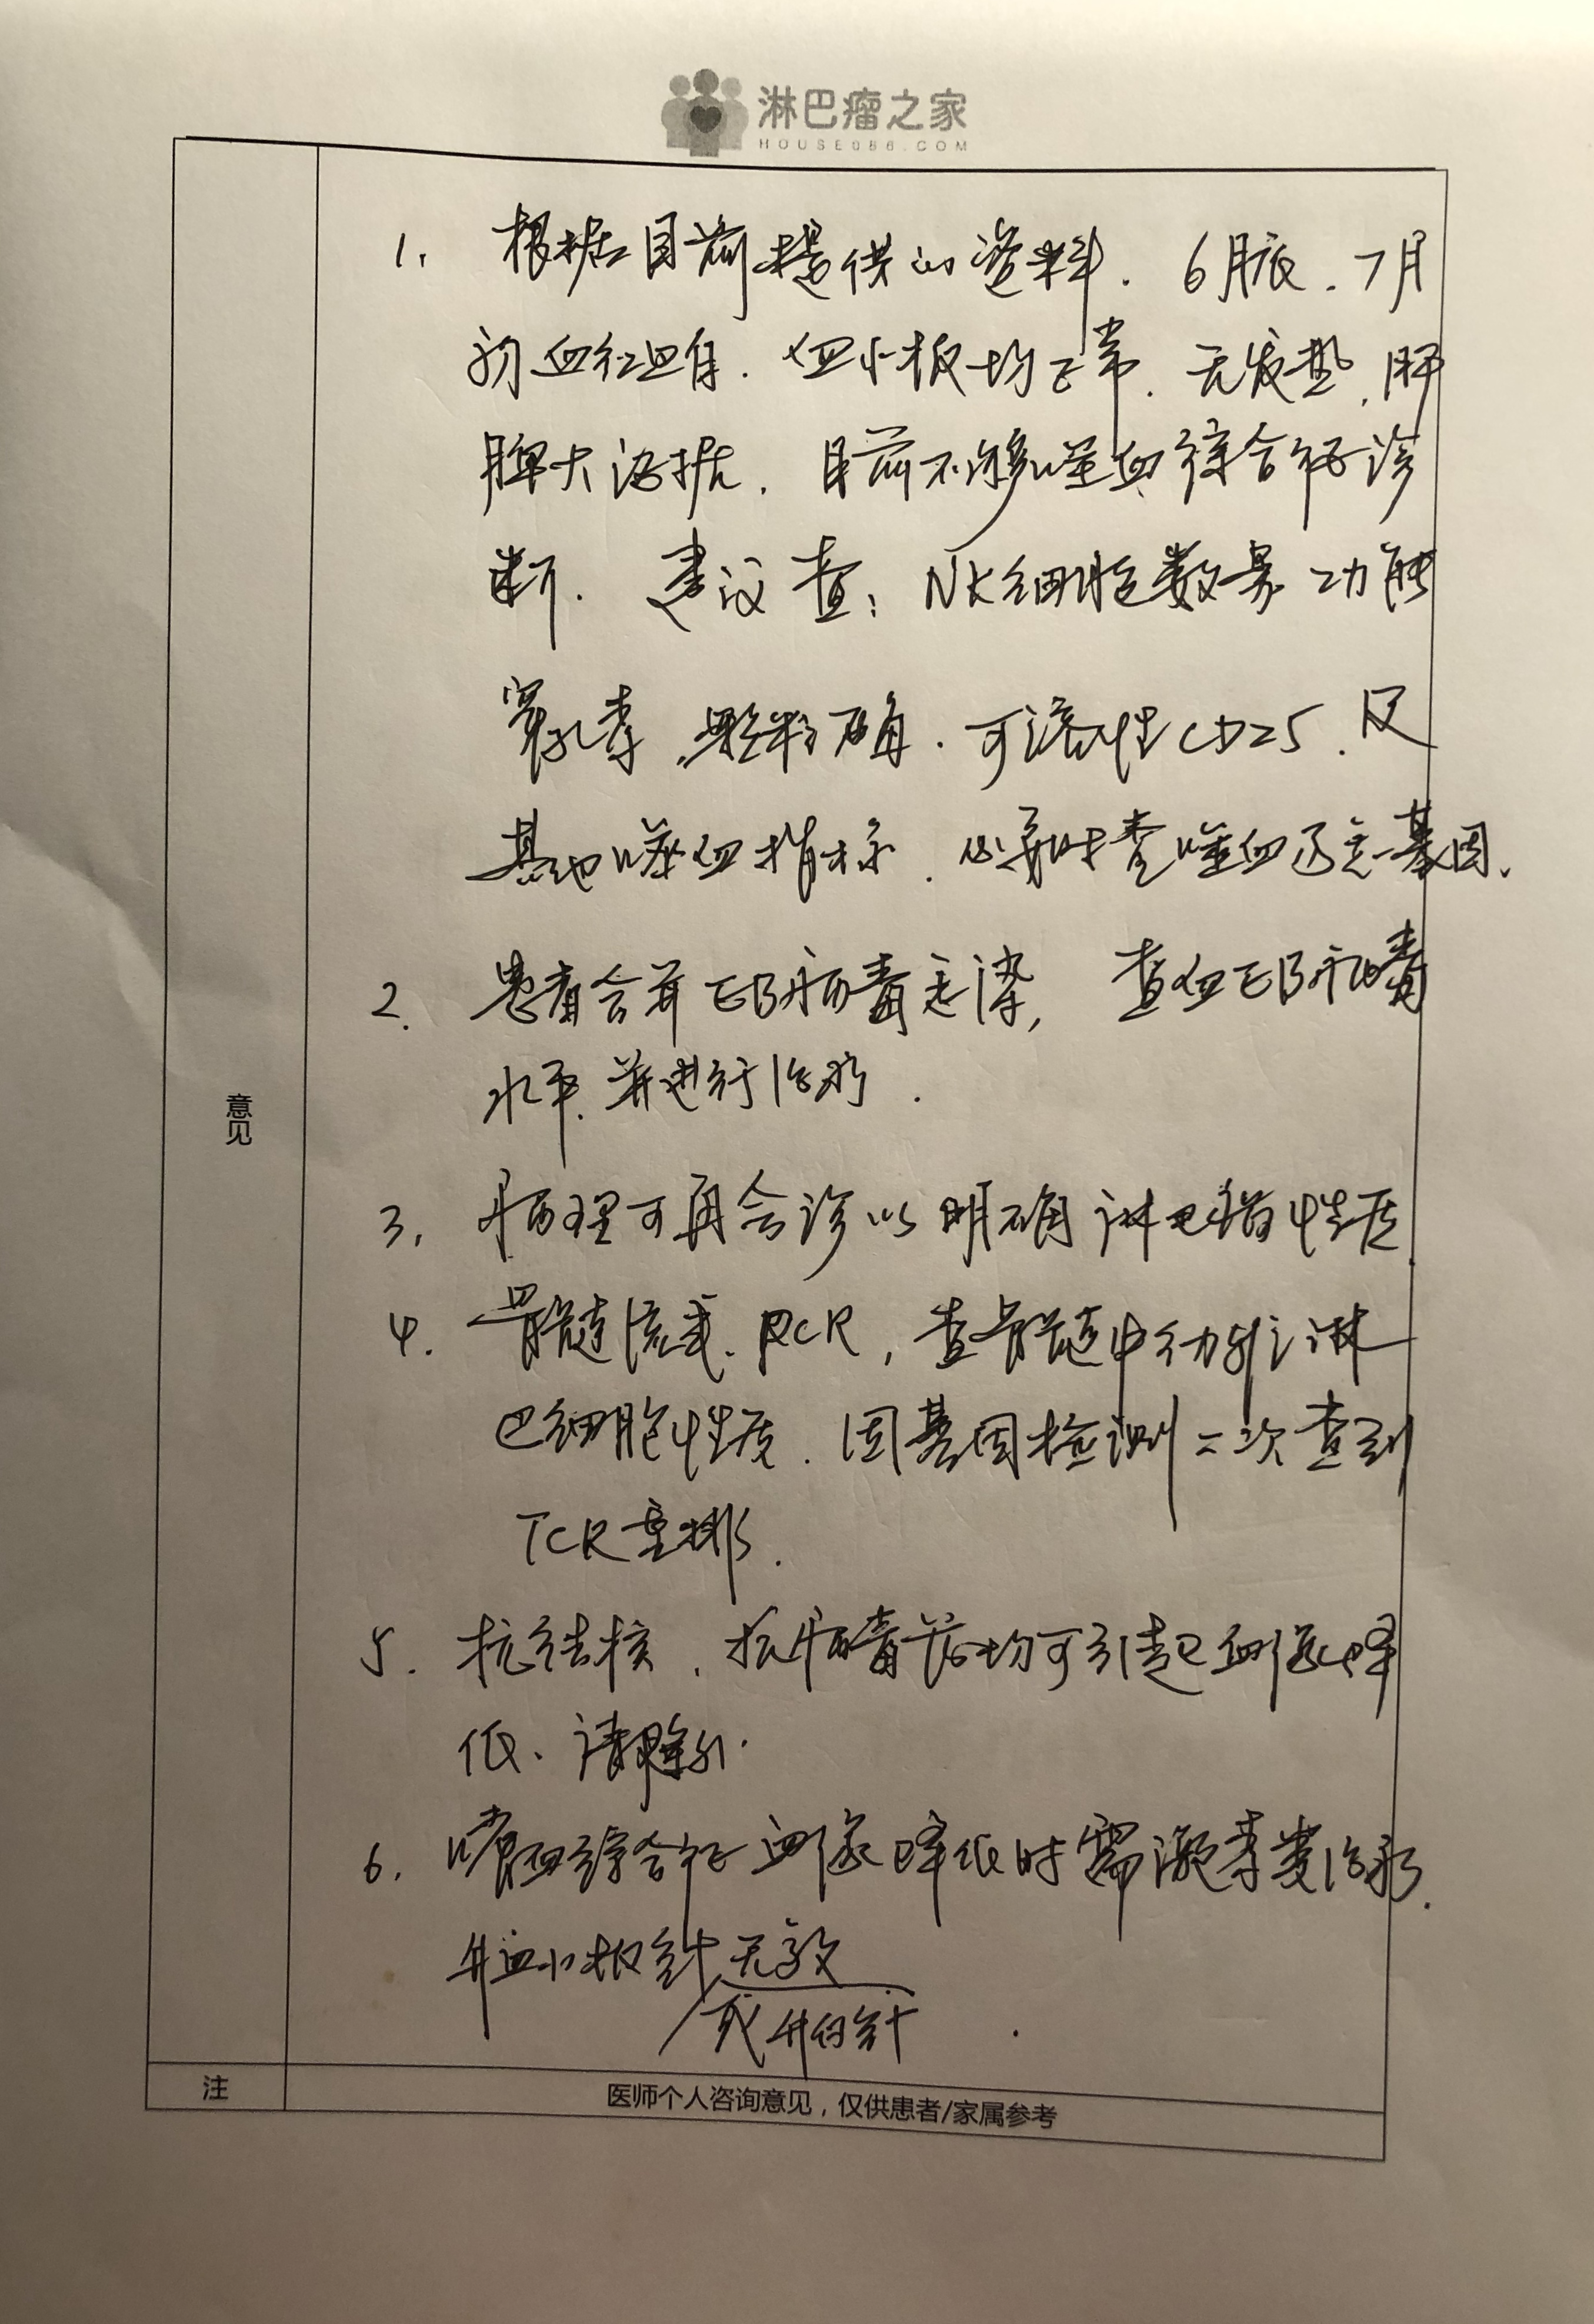 淋巴瘤之家
HOUSE086.COM
意见
1. 根据目前提供的资料. 6月底. 7月
初血红蛋白. 血小板均正常. 无发热, 肝
脾大证据. 目前不够噬血综合征诊
断. 建议查: NK细胞数量 功能
穿孔素. 颗粒酶. 可溶性CD25. 及
其他噬血指标. 必要时查噬血相关基因.
2. 患者合并EB病毒感染, 查血EB病毒
水平. 并进行治疗.
3. 病理可再会诊以明确淋巴瘤性质
4. 骨髓流式. PCR, 查骨髓中幼稚淋
巴细胞性质. 因基因检测二次查到
TCR重排.
5. 抗结核. 抗病毒药均可引起血像降
低. 请除外.
6. 噬血综合征血像降低时需激素类治疗.
升血小板针无效
或升白针.
注
医师个人咨询意见，仅供患者/家属参考